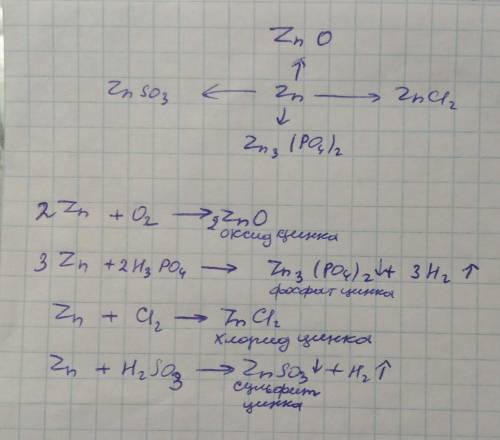 ZnO
↑
ZnSO3 ← Zn → ZnCl2
↓
Zn3(PO4)2
2Zn + O2 → 2ZnO
оксид цинка
3Zn + 2H3PO4 → Zn3(PO4)2↓ + 3H2↑
фосфат цинка
Zn + Cl2 → ZnCl2
хлорид цинка
Zn + H2SO3 → ZnSO3↓ + H2↑
сульфит
цинка